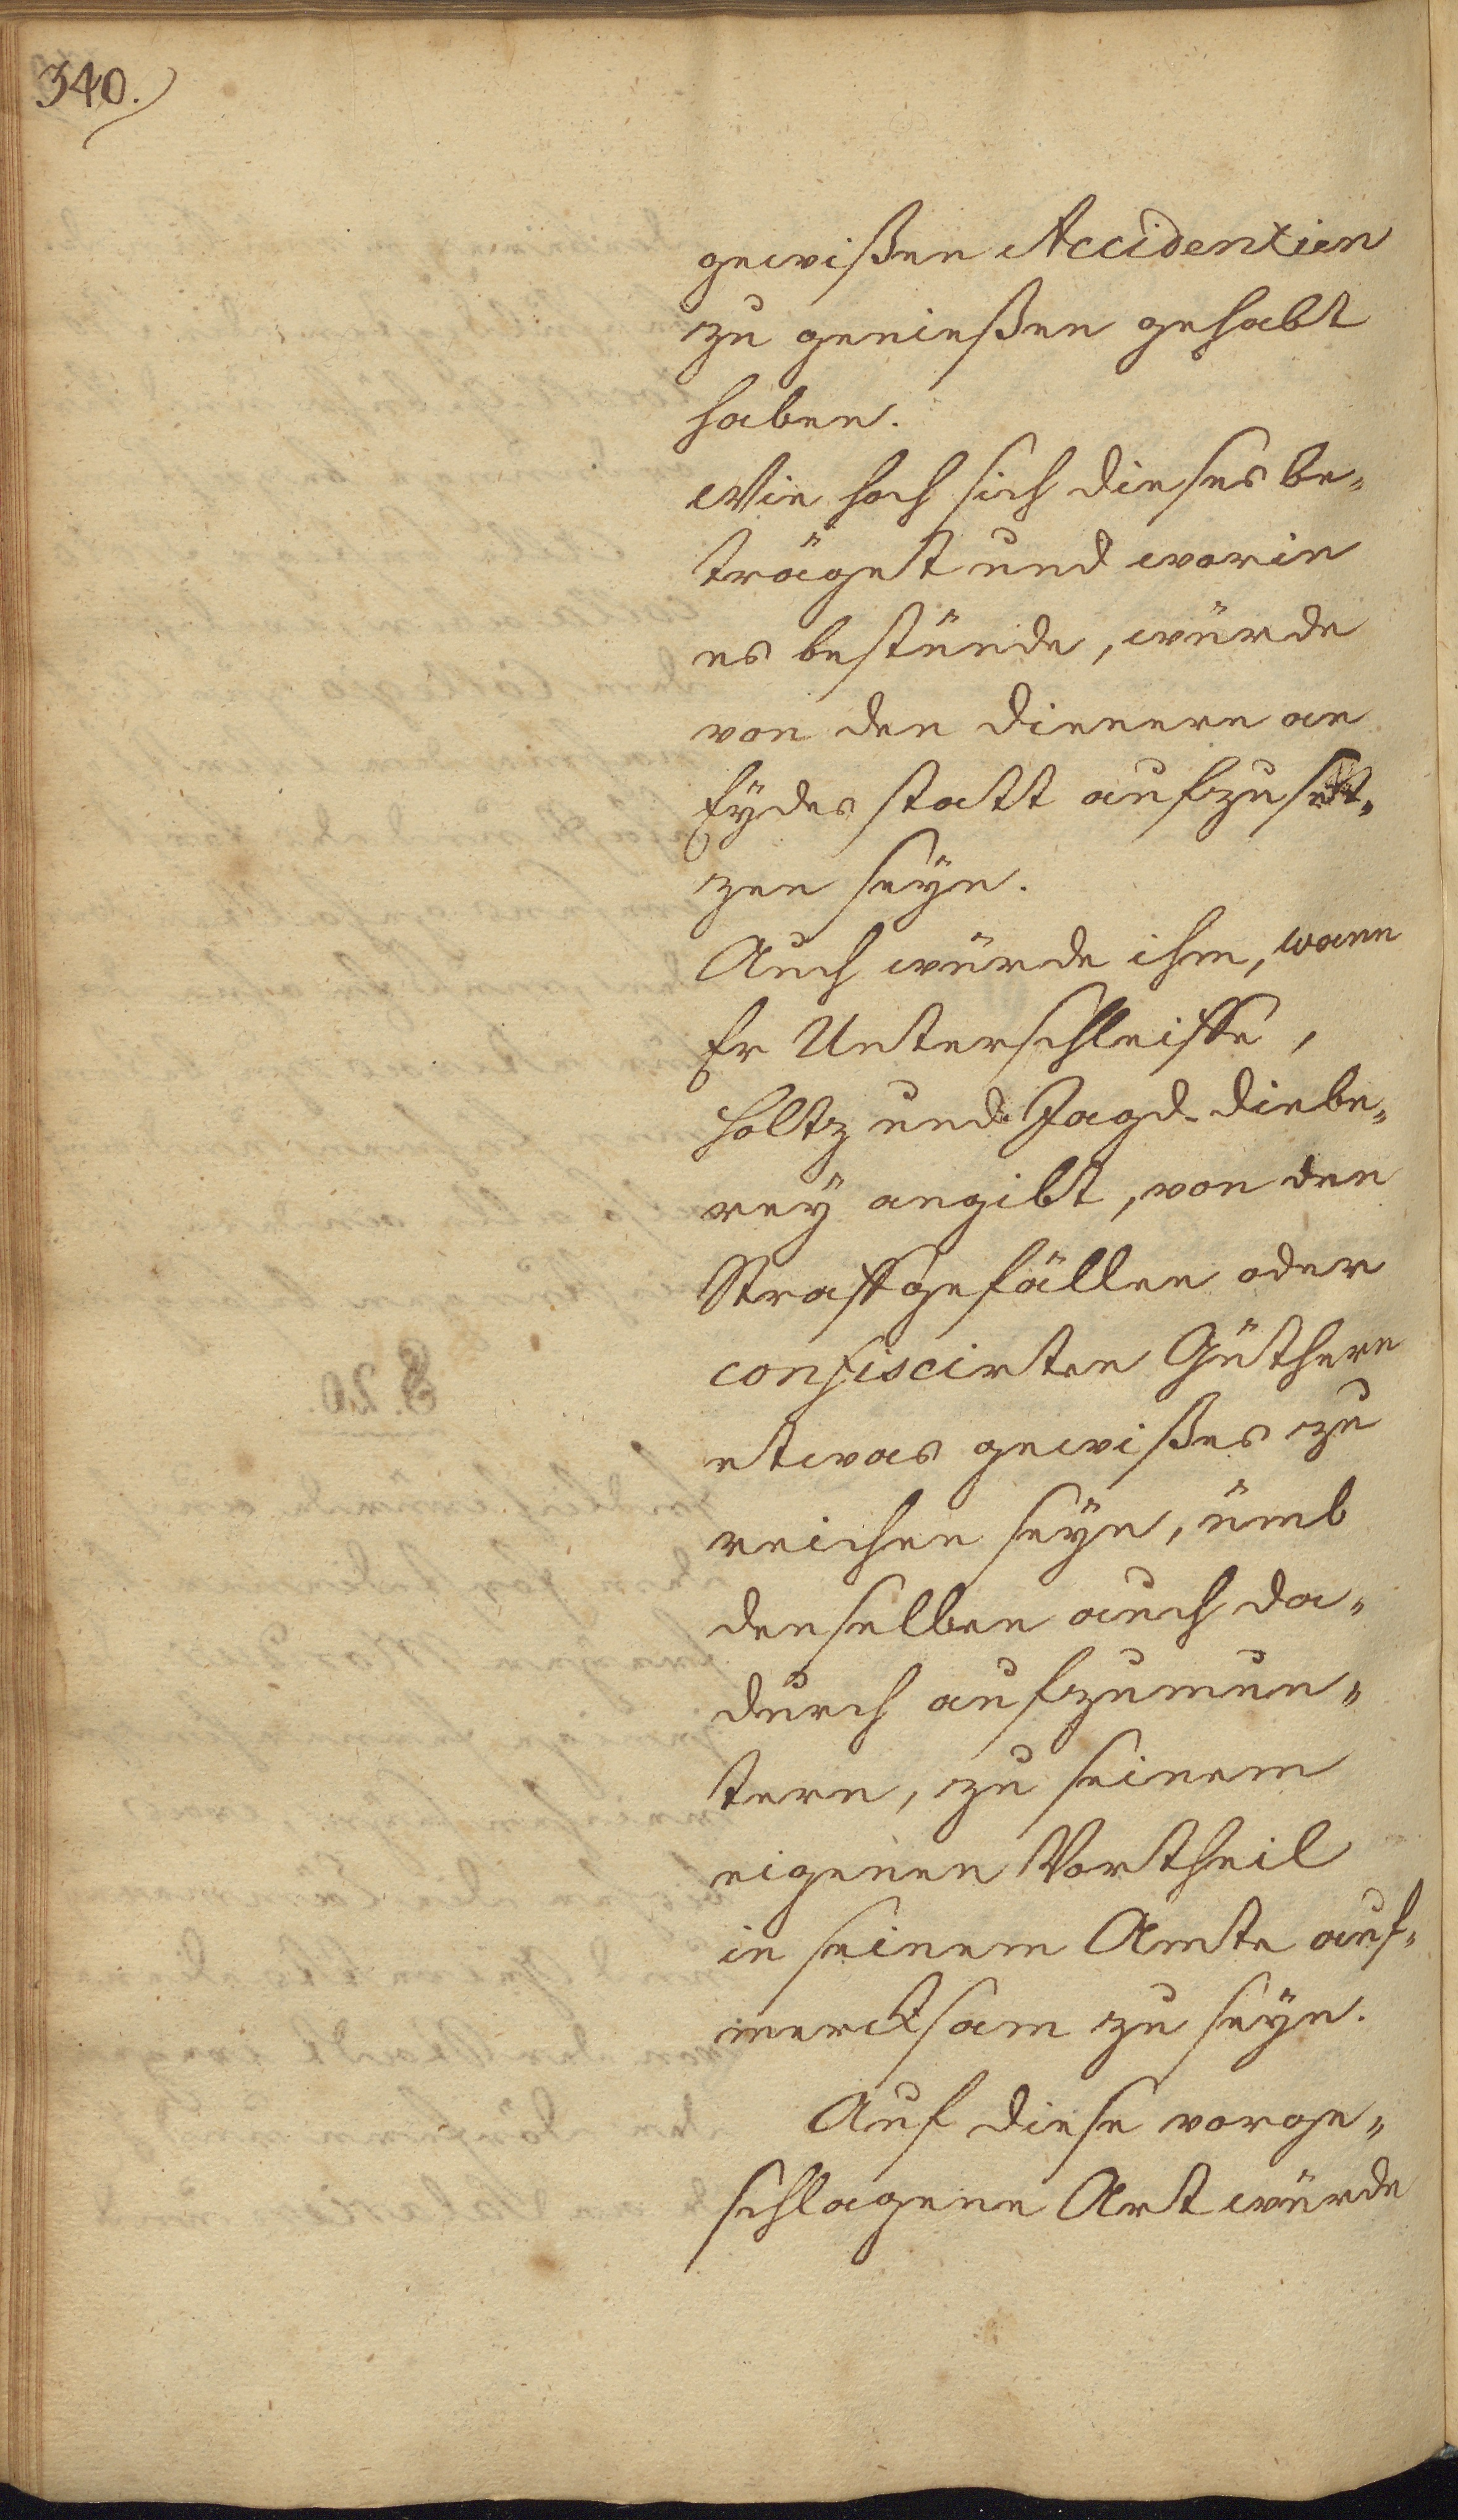 340.
gewißen Accidentien
zu genießen gehabt
haben.
Wie hoch sich dieses be„
träget und worin
es bestünde, würde
von den Dienern an
Eydes statt aufzuset„
zen seyn.
Auch würde ihm, wann
Er Unterschleiffe,
Holtz und Jagd-Diebe„
rey angibt, von den
Straffgefällen oder
confiscirten Güthern
etwas gewißes zu
reichen seyn, ümb
denselben auch da„
durch aufzumun„
tern, zu seinem
eigenen Vortheil
in seinem Amte auf„
mercksam zu seyn.
Auf diese vorge„
schlagene Art würde